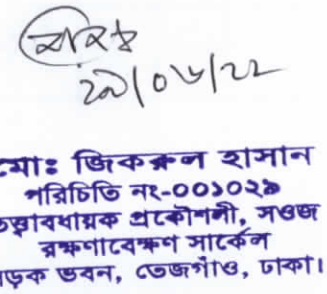 ২৯/০৬/২২
মো: জিকরুল হাসান
পরিচিতি নং-০০১০২৯
তত্ত্বাবধায়ক প্রকৌশলী, সওজ
রক্ষণাবেক্ষণ সার্কেল
সড়ক ভবন, তেজগাঁও, ঢাকা।